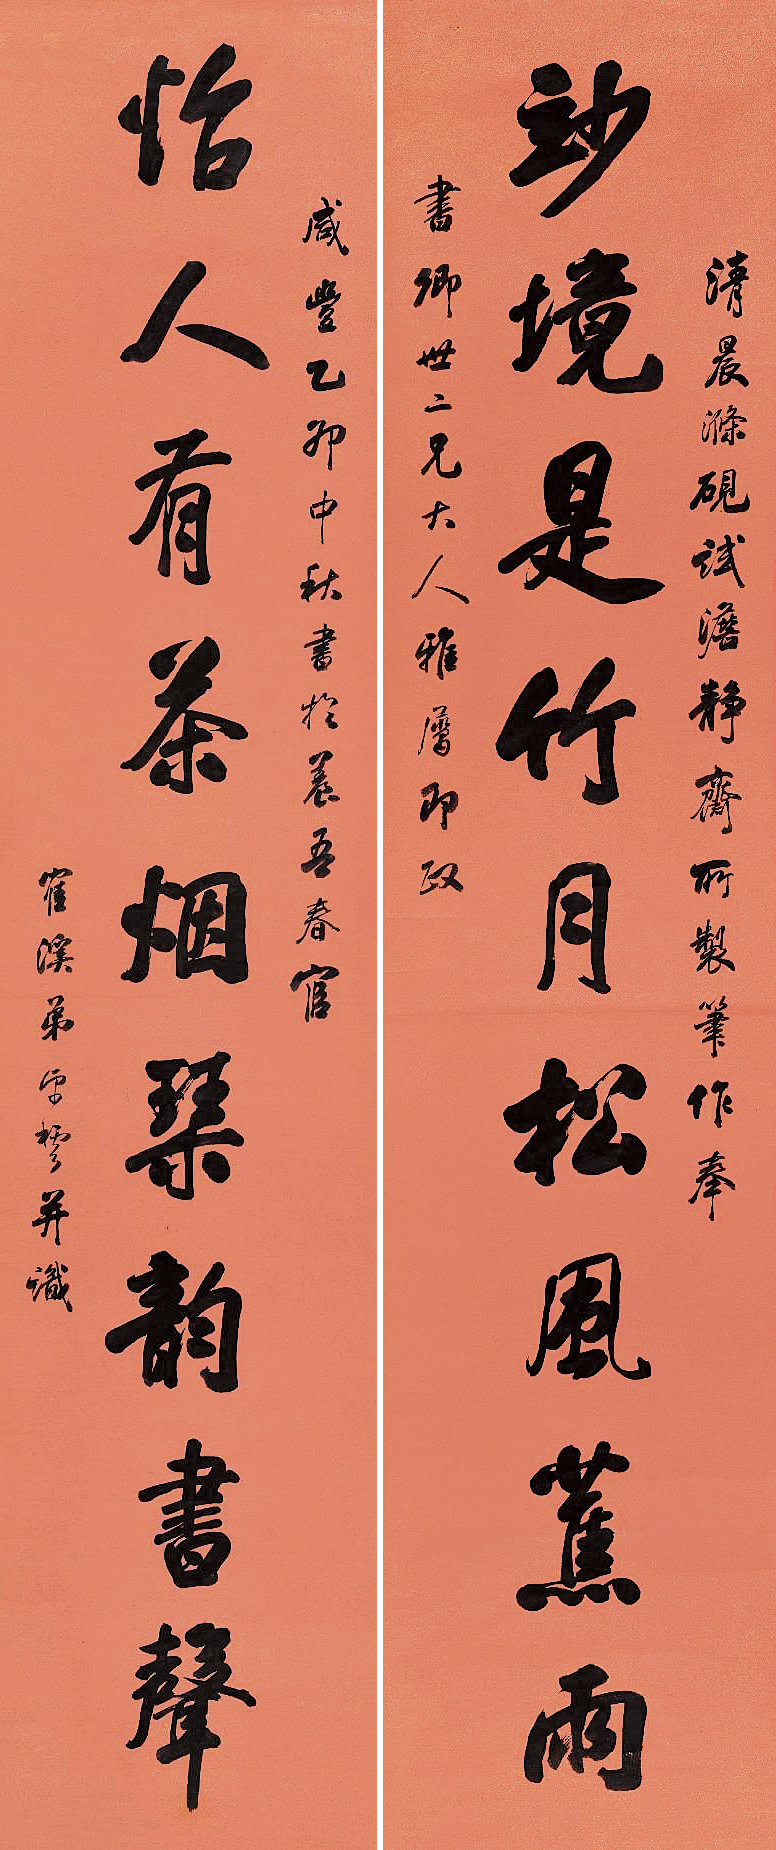 清晨滌硯試澹靜齋所製筆作奉
竗境是竹月松風蕉雨
書卿世二兄大人雅屬即政
咸豐乙卯中秋書於養吾春官
怡人有茶烟琹韵書聲
寉溪弟并識